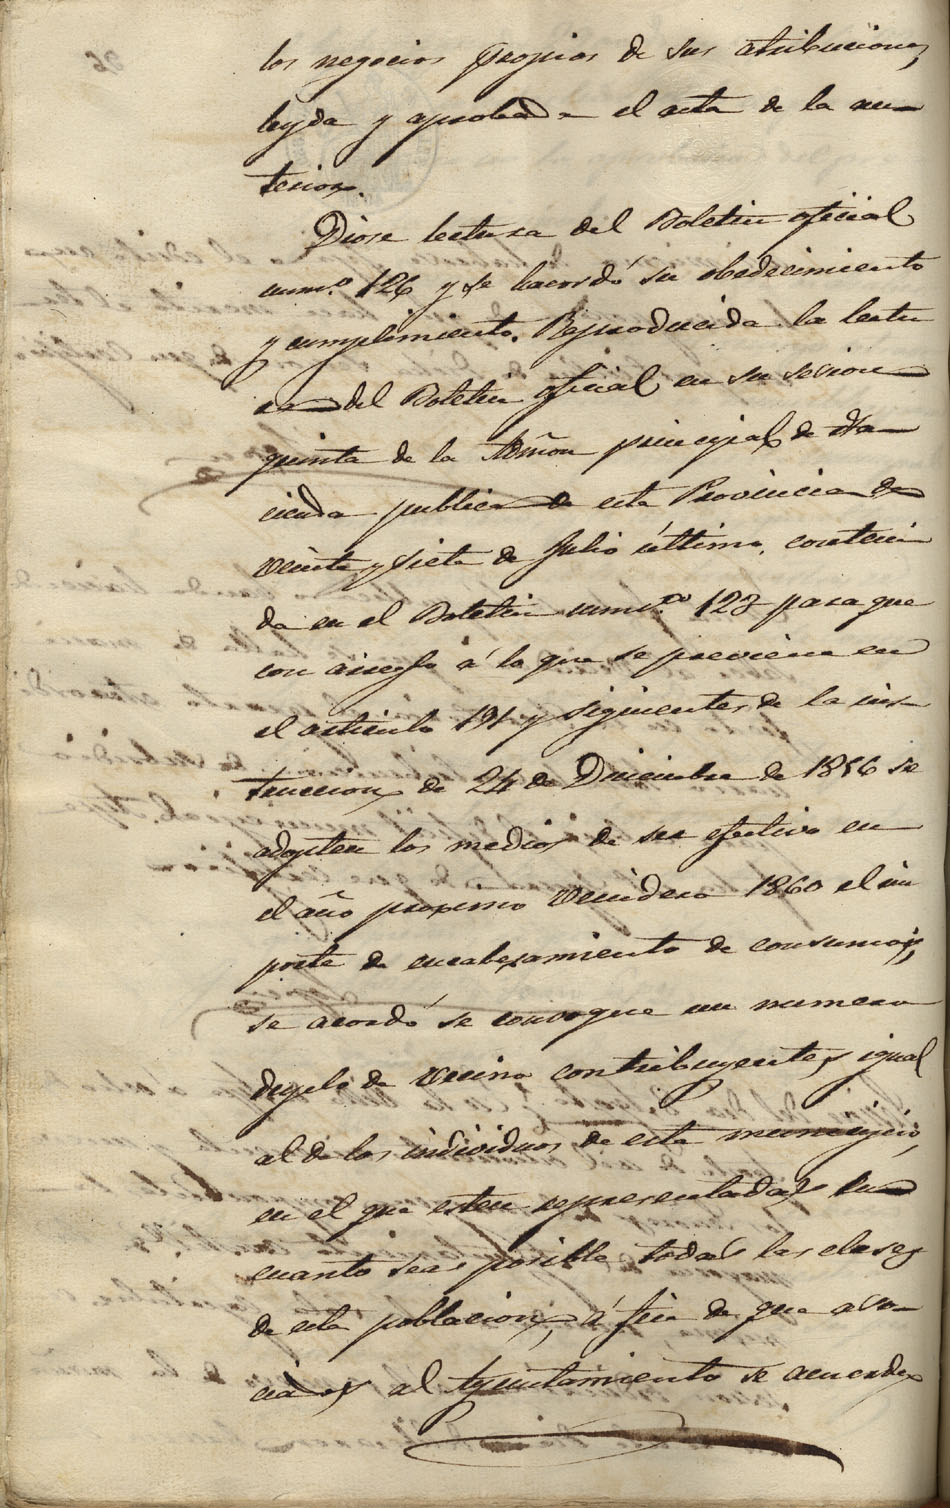 los negocios propios de sus atribuciones,
leyda y aprobada el acta de la an-
terior.
Diose lectura del Boletin oficial
num.º 126 y se acordó su obedecimiento
y cumplimiento. Reproducida la lectu
ra del Boletin oficial en su sesion
quinta de la Admon principal de Ha-
cienda publica de esta Provincia de
veinte y siete de Julio último, conteni
da en el Boletin num.º 123 para que
con arreglo á lo que se previene en
el articulo 191 y siguientes de la ins-
truccion de 24 de Diciembre de 1856 se
adopten los medios de ser efectivo en
el año proximo venidero 1860 el im
porte de encabezamiento de consumos,
se acordó se convoque un numero
duplo de vecino contribuyentes igual
al de los individuos de este municipio,
en el que esten representadas en
cuanto sea posible todas las clases
de esta poblacion, á fin de que aso-
ciados al Ayuntamiento se acuerde